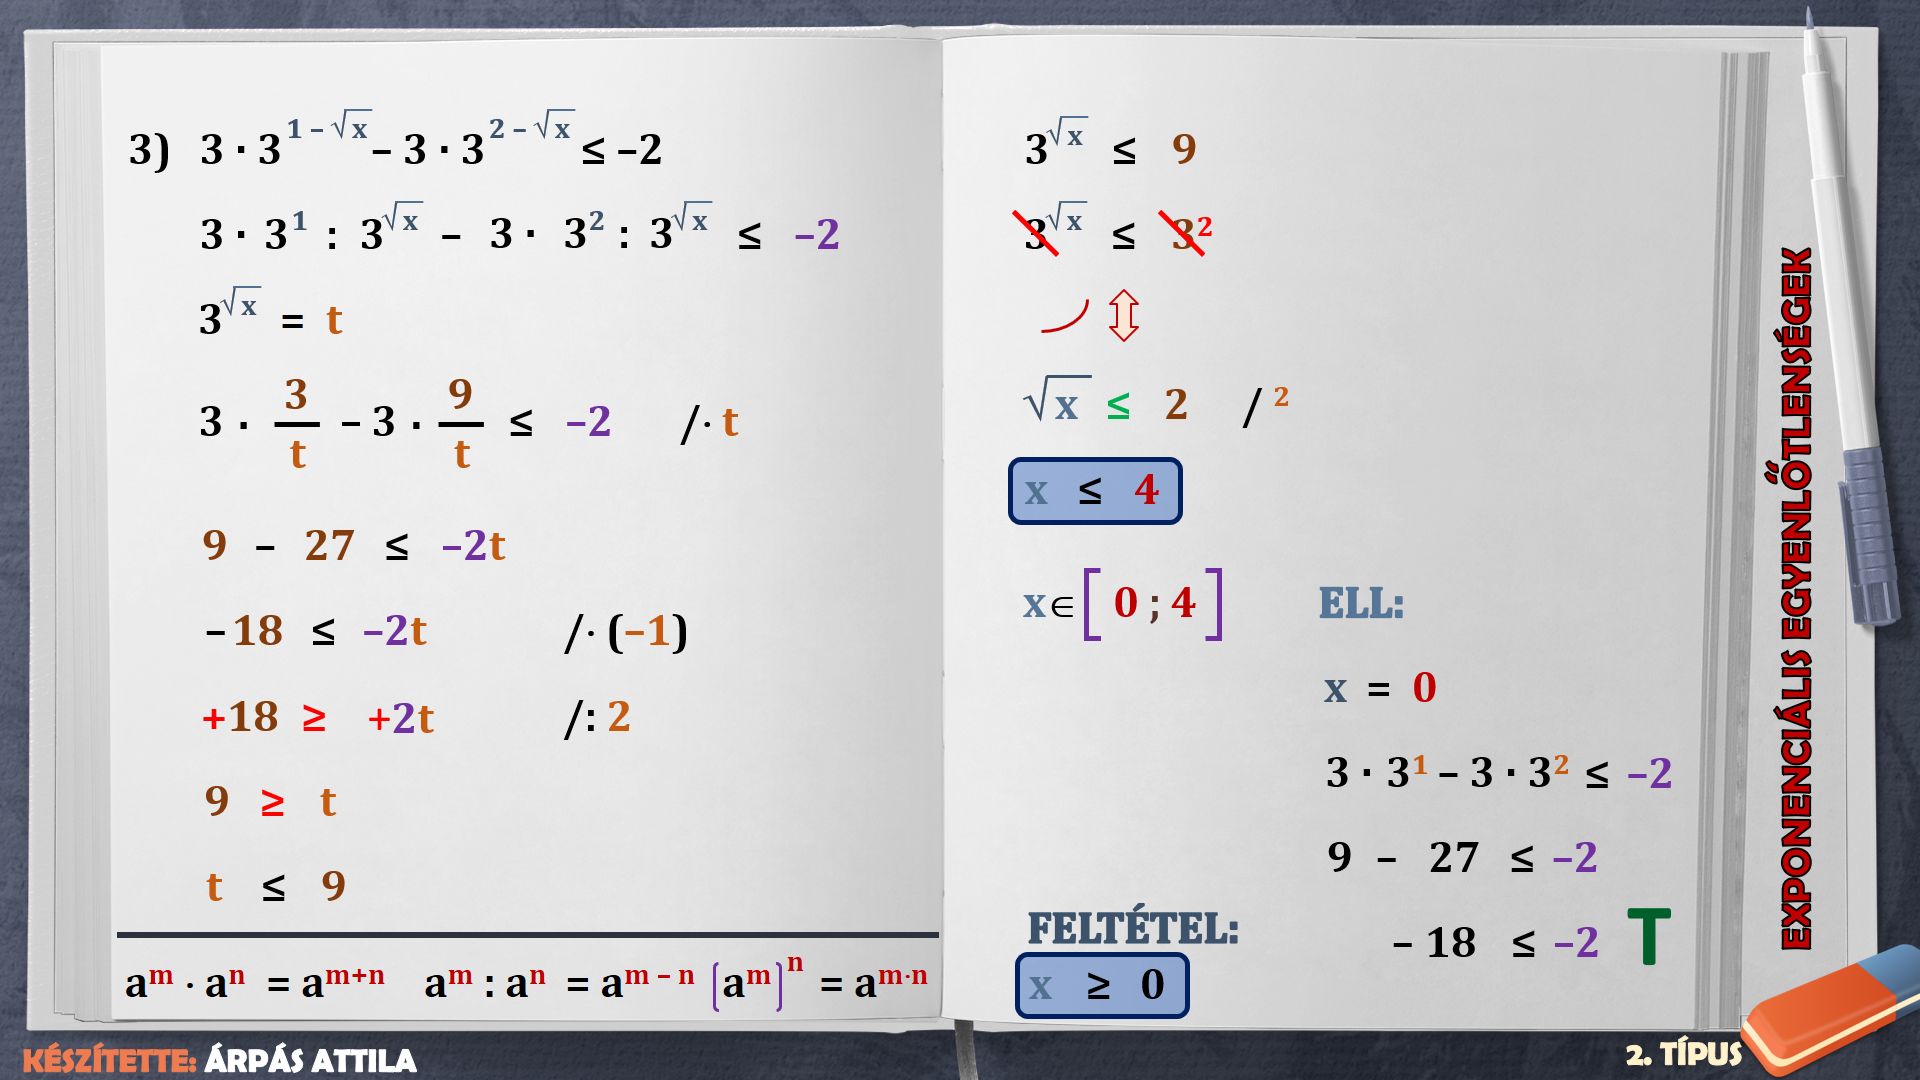 3) 3 · 3^(1 – √x) – 3 · 3^(2 – √x) ≤ –2
3 · 3¹ : 3^(√x) – 3 · 3² : 3^(√x) ≤ –2
3^(√x) = t
3 · 3/t – 3 · 9/t ≤ –2 /· t
9 – 27 ≤ –2t
– 18 ≤ –2t /· (–1)
+18 ≥ +2t /: 2
9 ≥ t
t ≤ 9
a^m · a^n = a^(m+n) a^m : a^n = a^(m – n) [a^m]^n = a^(m·n)
3^(√x) ≤ 9
3^(√x) ≤ 3²
√x ≤ 2 / ²
x ≤ 4
x ∈ [ 0 ; 4 ]
FELTÉTEL:
x ≥ 0
ELL:
x = 0
3 · 3¹ – 3 · 3² ≤ –2
9 – 27 ≤ –2
– 18 ≤ –2 T
EXPONENCIÁLIS EGYENLŐTLENSÉGEK
KÉSZÍTETTE: ÁRPÁS ATTILA
2. TÍPUS